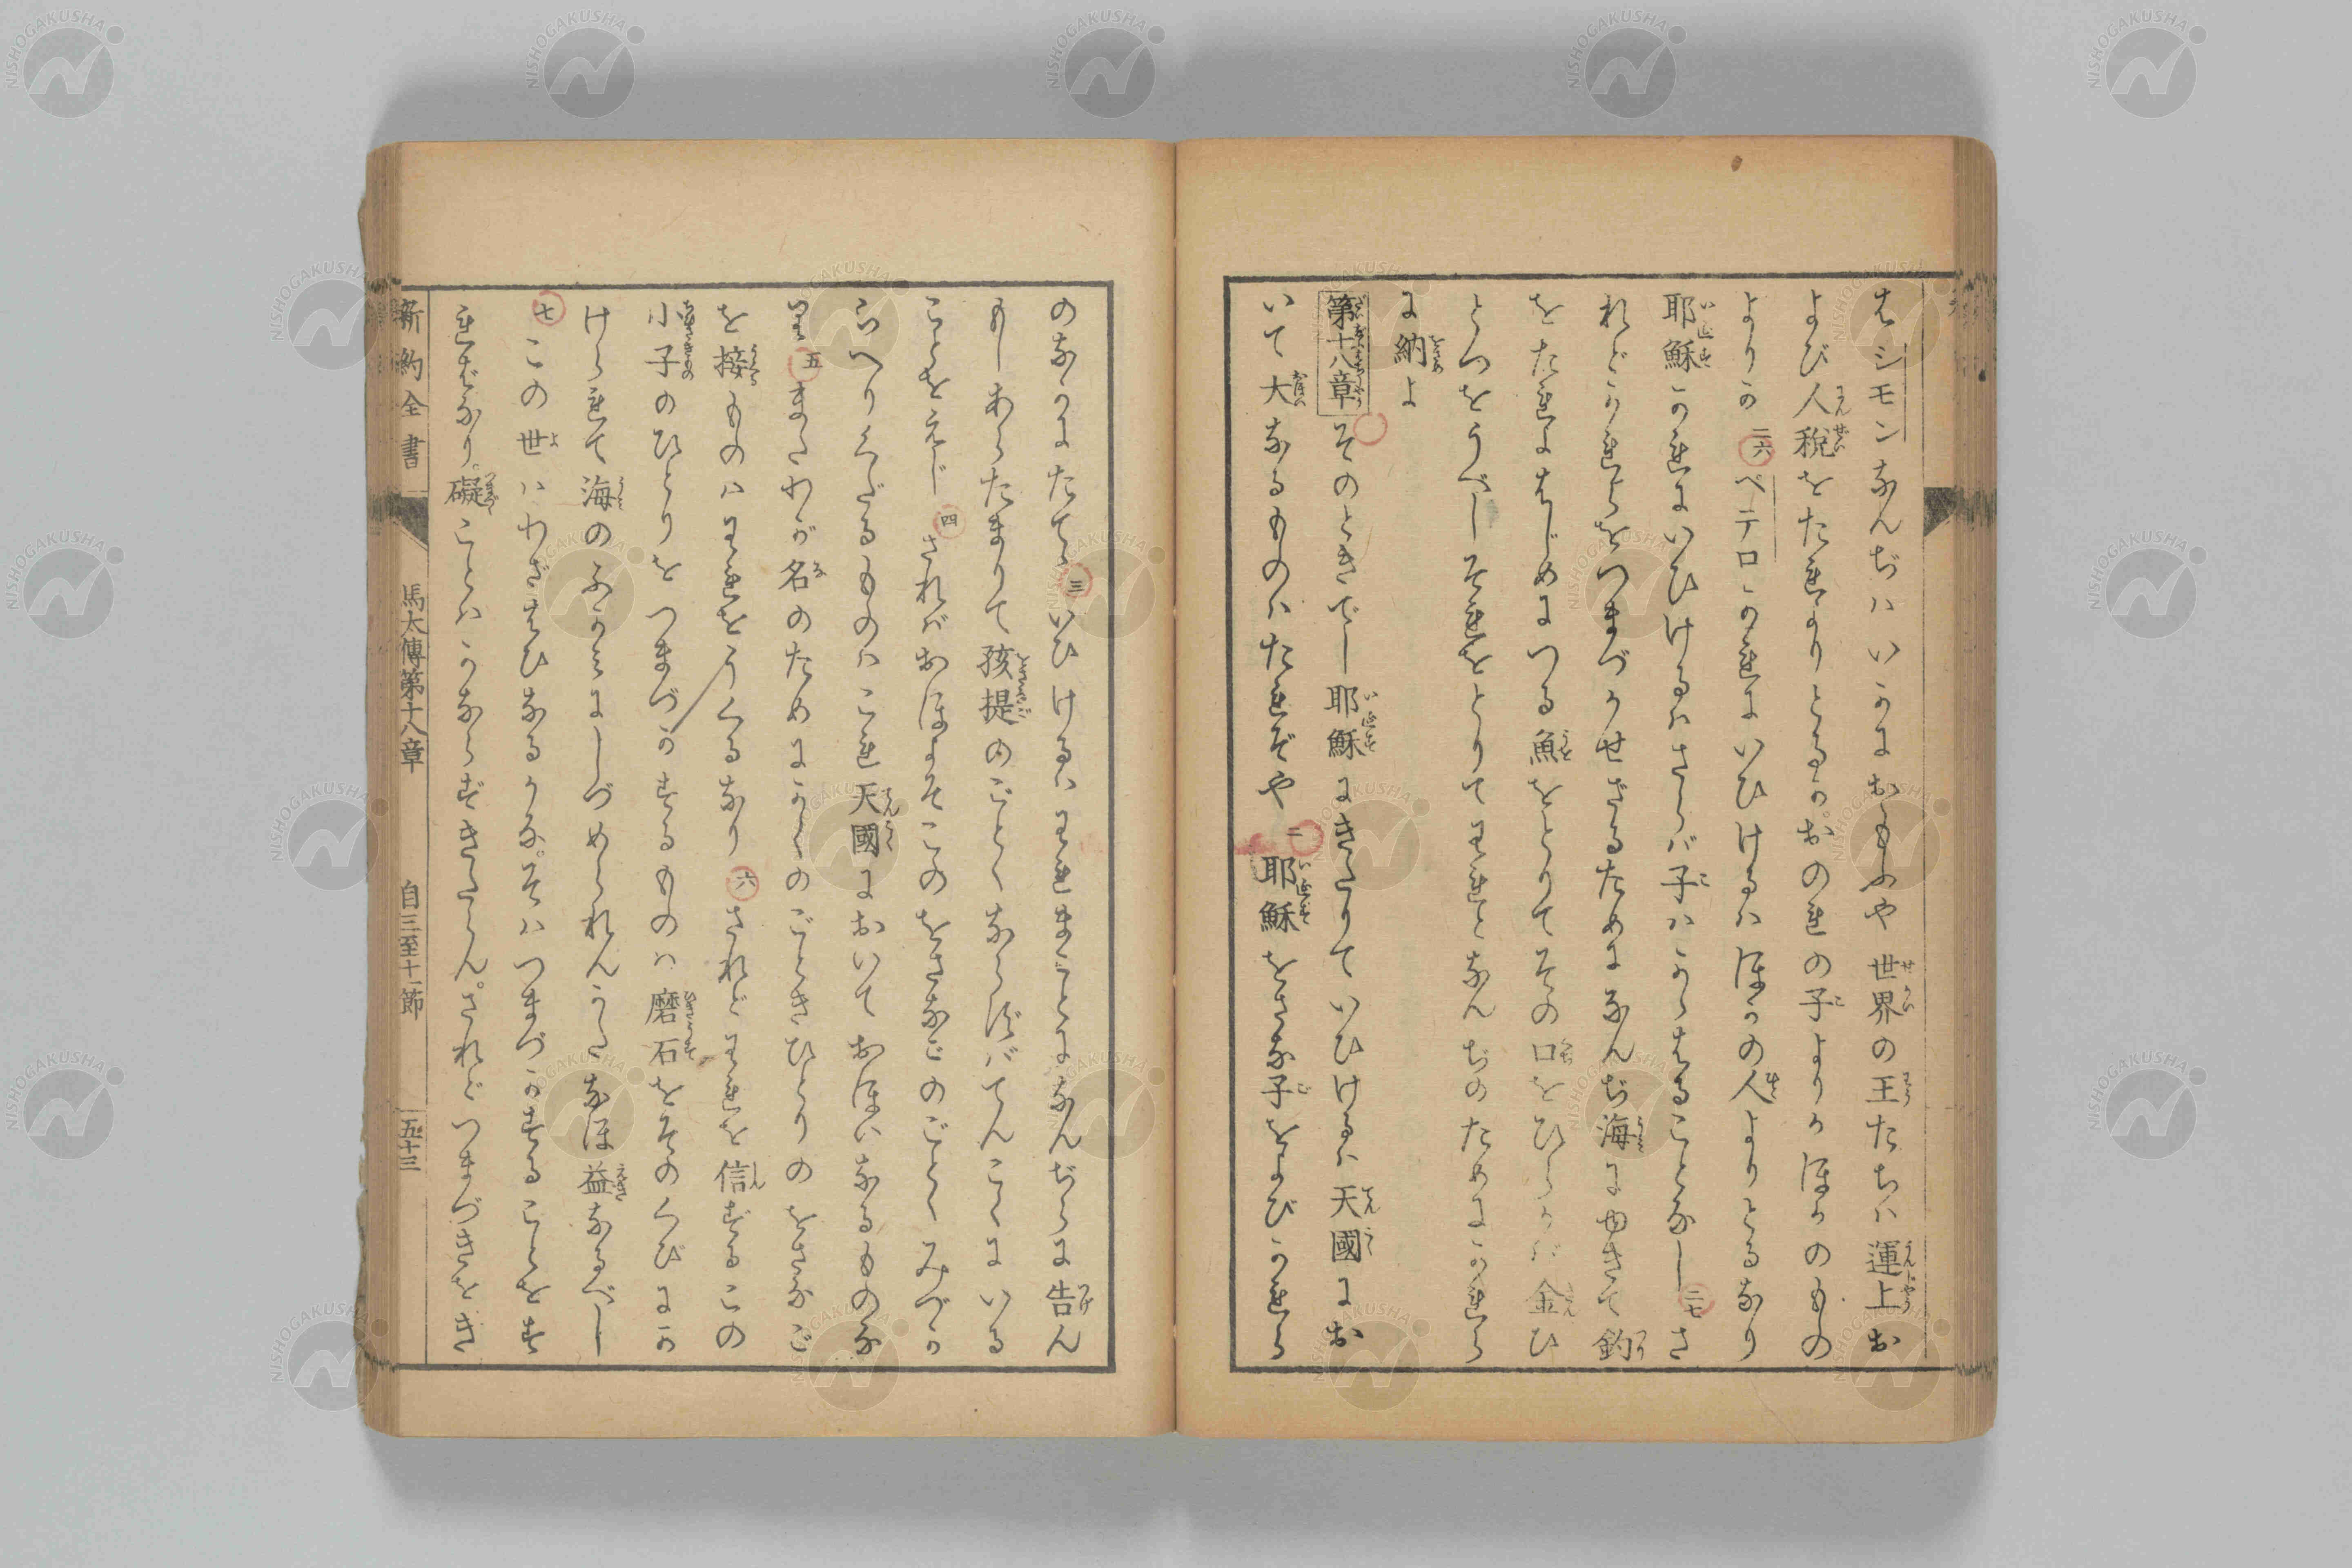 はシモンなんぢハいかにおもふや世界の王たちハ運上お
よび人税をたれよりとるか。おのれの子よりかほかのもの
よりか 二六 ペテロかれにいひけるハほかの人よりとるなり
耶穌かれにいひけるハさらバ子ハかゝはることなし 二七 さ
れどかれらをつまづかせざるためになんぢ海にゆきて釣
をたれよはじめにつる魚をとりてその口をひらかバ金ひ
とつをうべしそれをとりてわれとなんぢのためにかれら
に納よ
第十八章 そのときでし耶穌にきたりていひけるハ天國にお
いて大なるものハたれぞや 二 耶穌をさな子をよびかれら
のなかにたてゝ 三 いひけるハわれまことになんぢらに告ん
もしあらたまりて孩提のごとくならずバてんこくにいる
ことをえじ 四 されバおほよそこのをさなごのごとくみづか
らへりくだるものハこれ天國においておほいなるものな
り 五 またわが名のためにかくのごときひとりのをさなご
を接ものハわれをうくるなり 六 されどわれを信ずるこの
小子のひとりをつまづかするものハ磨石をそのくびにか
けられて海のふかみにしづめられんかたなほ益なるべし
七 この世ハわざはひなるかな。そハつまづかすることをす
ればなり。礙ことハかならずきたらん。されどつまづきをき
新約全書 馬太傳第十八章 自三至十一節 五十三